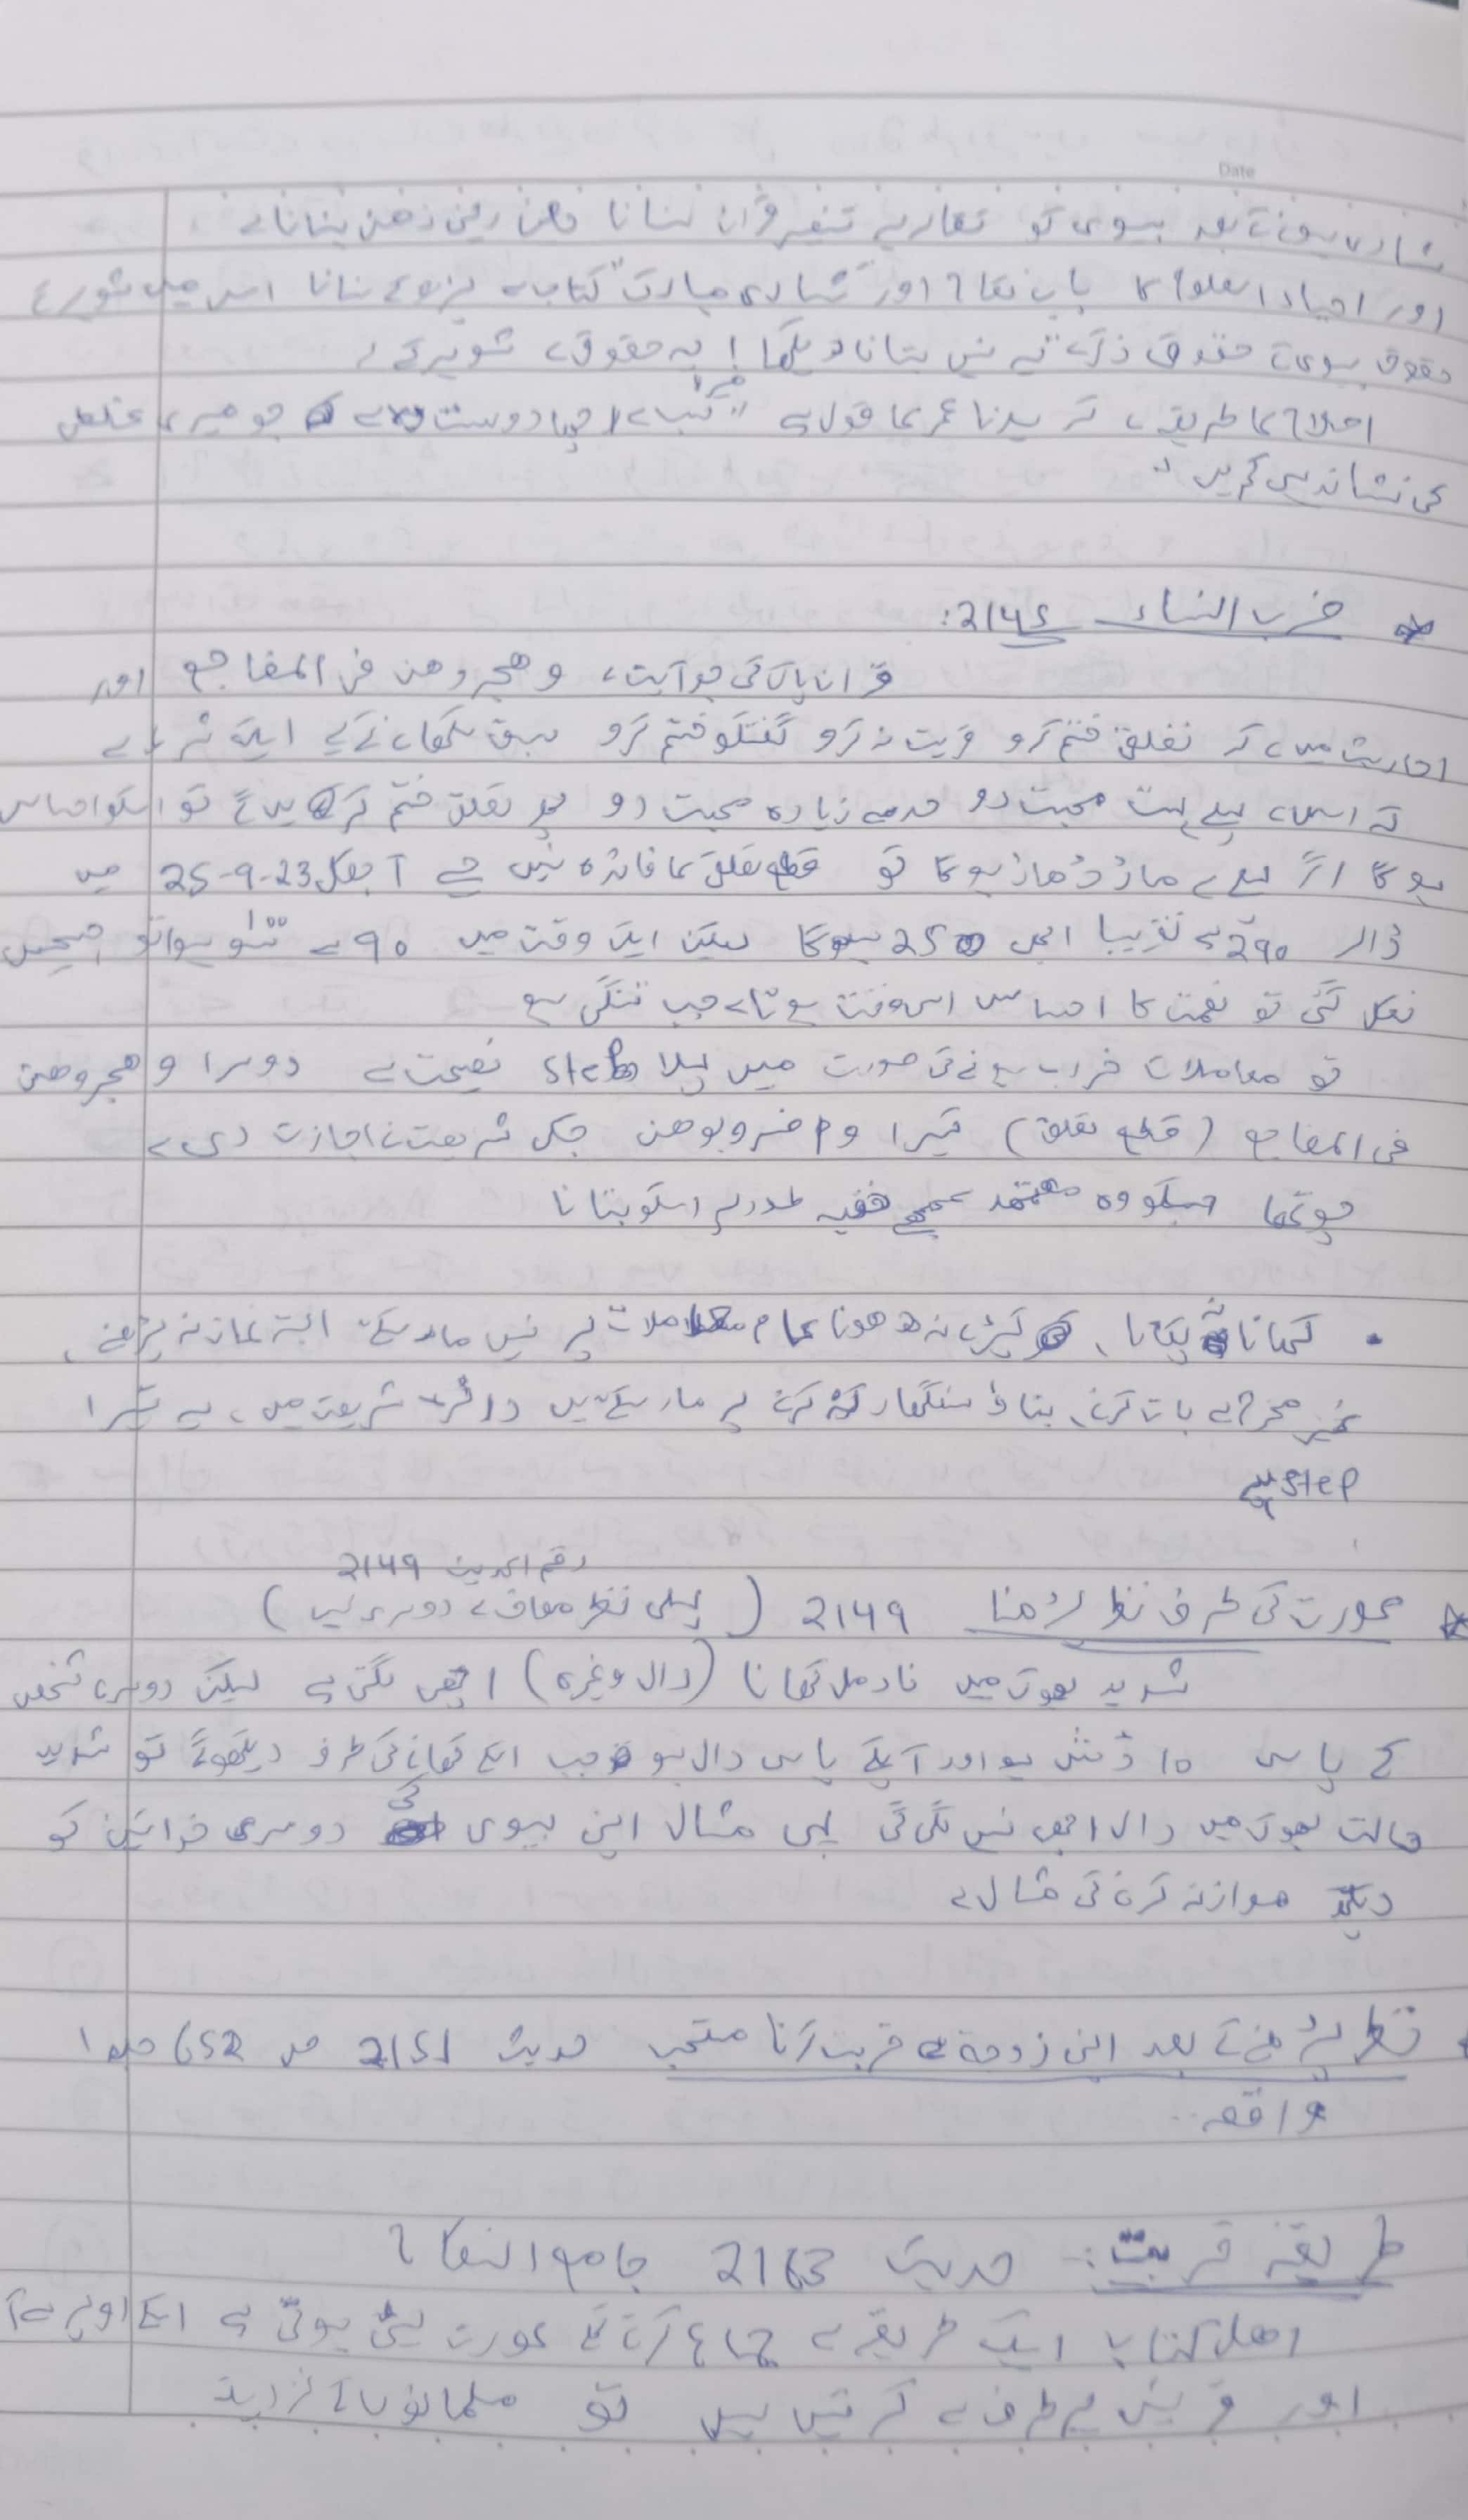 Date
شادی ہونے کے بعد بیوی کو تقاریر تفسیر قرآن سنانا دینی ذھن بنانا ہے
اور احیاء العلوم کا باب نکاح اور "شادی مبارک" کتاب سے پڑھ کے سنانا اس میں شوہر کے
حقوق بیوی کے حقوق ذکر ہے یہ نہیں بتانا دیکھا! یہ حقوق ہے شوہر کے
اصلاح کا طریقہ ہے کہ سیدنا عمر کا قول ہے "سب سے اچھا دوست میرا وہ ہے جو میری غلطی
کی نشاندہی کریں"
* ضرب النساء 2145:
قرآن پاک کی جو آیت ہے وھجروھن فی المضاجع اور
احادیث میں ہے کہ تعلق ختم کرو قربت نہ کرو گفتگو ختم کرو سبق سکھانے کے لیے ایک شرط ہے
کہ اس سے پہلے بہت محبت دو حد سے زیادہ محبت دو پھر تعلق ختم کریں گے تو اسکو احساس
ہوگا اگر پہلے سے مار دھاڑ ہوگا تو قطع تعلق کا فائدہ نہیں ہے آجکل 23-9-25 میں
ڈالر 290 ہے تقریبا ابھی 250 ہوگا لیکن ایک وقت میں 90 سے سو ہوا تو چیخیں
نکل گئی تو نعمت کا احساس اس وقت ہوتا ہے جب تنگی ہو
تو معاملات خراب ہونے کی صورت میں پہلا step نصیحت ہے دوسرا وھجروھن
فی المضاجع (قطع تعلق) تیسرا واضربوھن جسکی شریعت نے اجازت دی ہے
چوتھا جسکو وہ معتمد سمجھے خفیہ طور پر اسکو بتانا
• کھانا نہ پکانا، کپڑے نہ دھونا عام معاملات پر نہیں مار سکتے البتہ نماز نہ پڑھنے،
غیر محرم سے بات کرنے، بناؤ سنگھار نہ کرنے پر مار سکتے ہیں دائرہ شریعت میں، یہ تیسرا
step ہے
رقم الحدیث 2149
* عورت کی طرف نظر پڑھنا 2149 (پہلی نظر معاف ہے دوسری نہیں)
شدید بھوک میں نارمل کھانا (دال وغیرہ) اچھی لگتی ہے لیکن دوسرے شخص
کے پاس 10 ڈش ہو اور آپکے پاس دال ہو جب اسکے کھانے کی طرف دیکھوگے تو شدید
حالت بھوک میں دال اچھی نہیں لگی گی یہی مثال اپنی بیوی کی دوسری خواتین کو
دیکھ موازنہ کرنے کی مثال ہے
نظر پڑھنے کے بعد اپنی زوجہ سے قربت کرنا مستحب حدیث 2151 ص 652 جلد 1
واقعہ..
طریقہ قربت:- حدیث 2163 جامع النکاح
اھل کتاب ایک طریقے سے جماع کرتے تھے عورت لیٹی ہوتی ہے اسکے اوپر سے آ
اور قریش ہر طرف سے کرتے ہیں تو مسلمانوں کے نزدیک